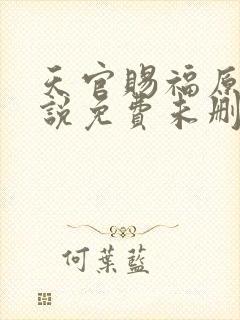 天官賜福原
說免費未刪
何葉藍